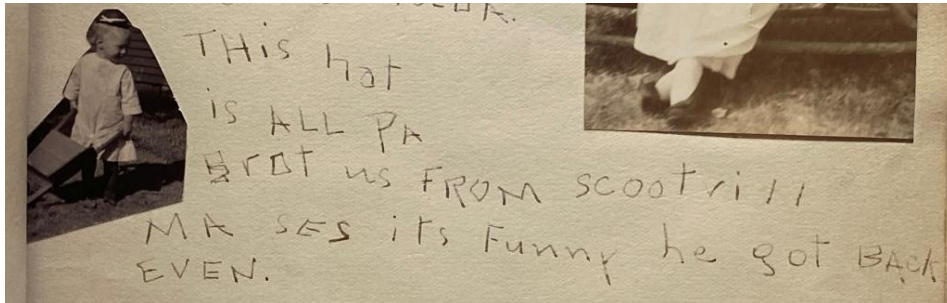 THis hat
is ALL PA
BrOT us FROM scootvill
MA SES iTs Funny he got BACK
EVEN.